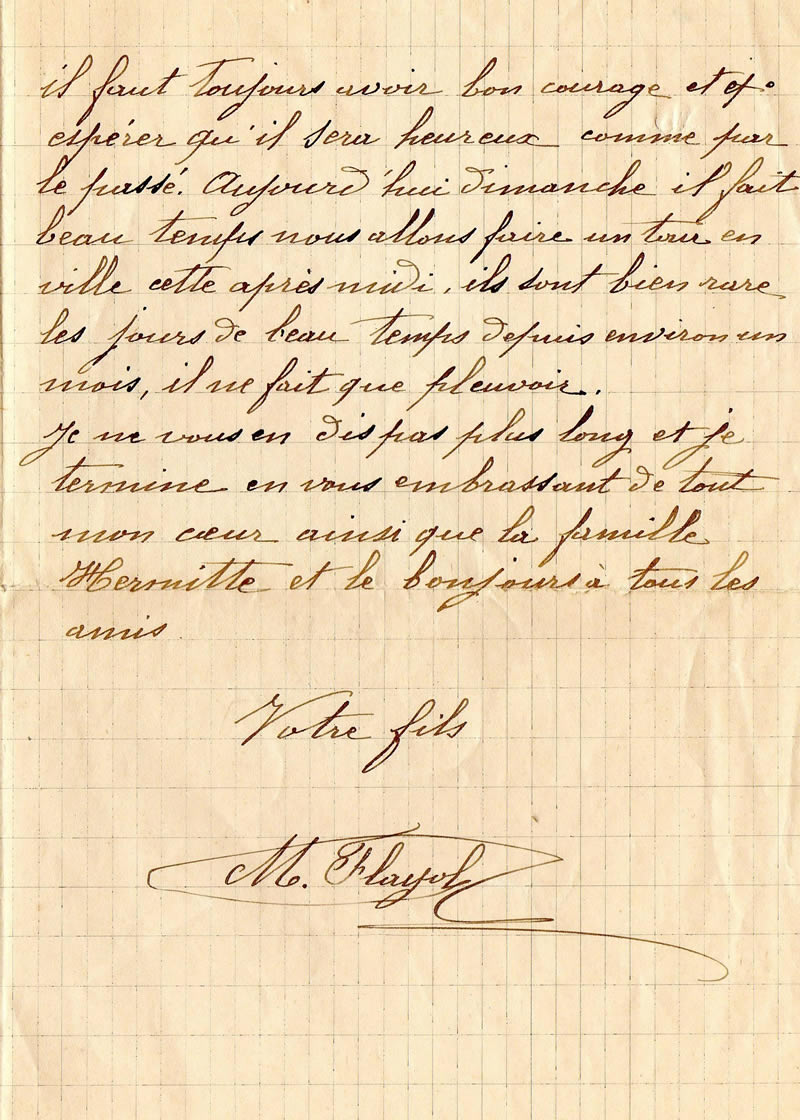 il faut toujours avoir bon courage et
espérer qu'il sera heureux comme par
le passé. Aujourd'hui dimanche il fait
beau temps nous allons faire un tour en
ville cette après midi, ils sont bien rare
les jours de beau temps depuis environ un
mois, il ne fait que pleuvoir.
Je ne vous en dis pas plus long et je
termine en vous embrassant de tout
mon cœur ainsi que la famille
Hermitte et le bonjours à tous les
amis
Votre fils
M. Flayol